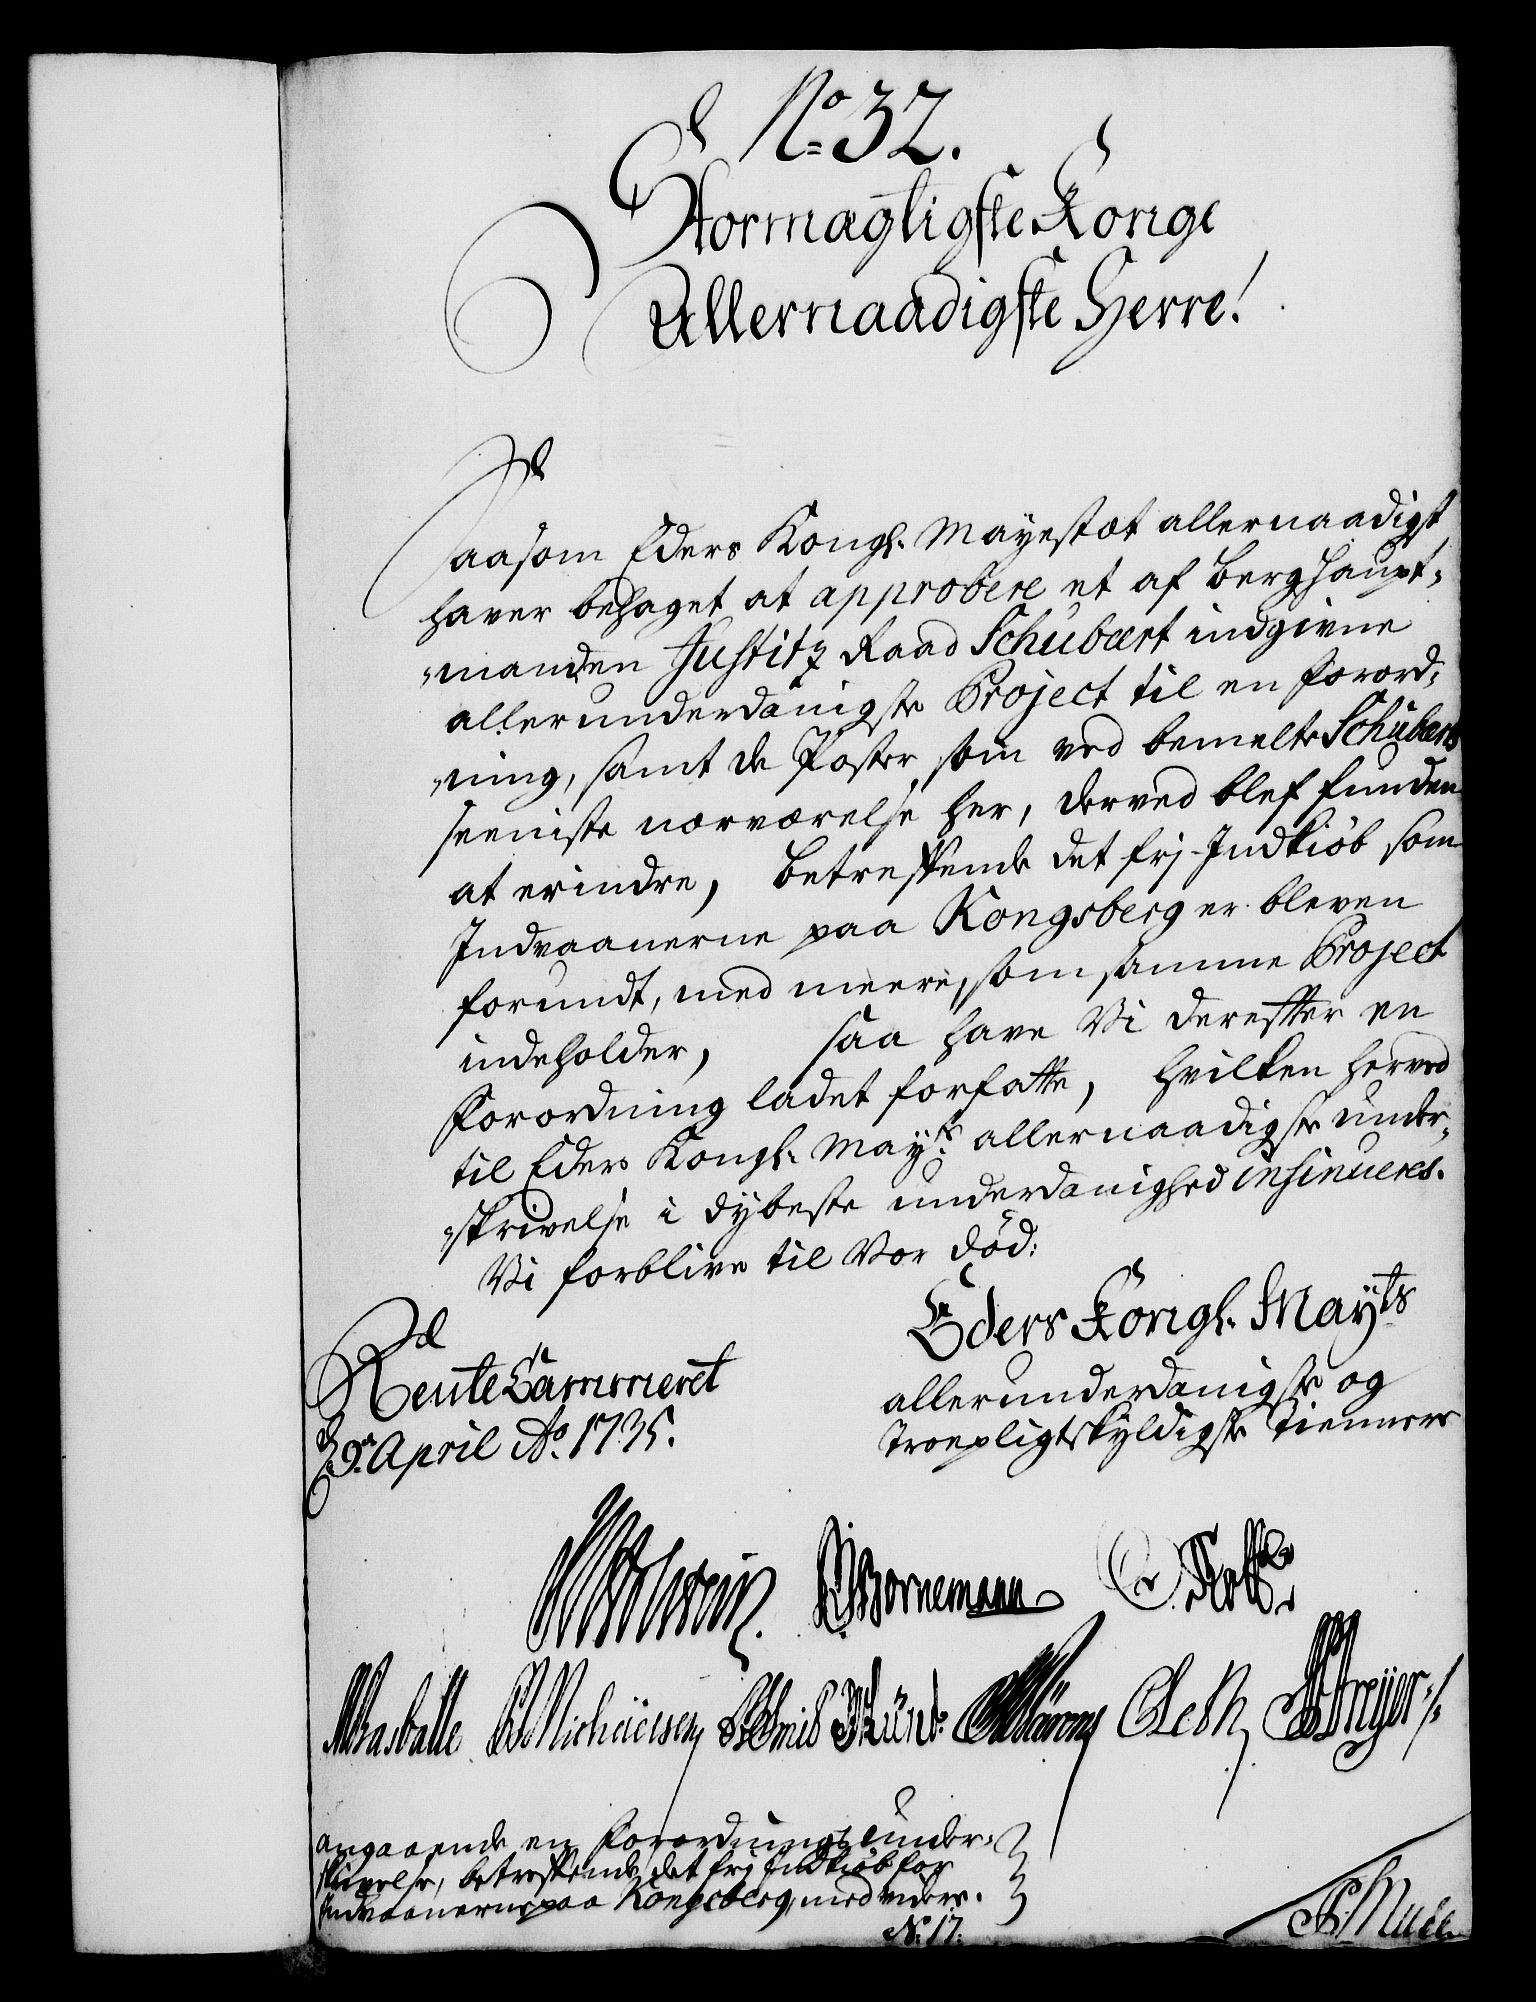 No 32.
Stormægtigste Konge
Allernaadigste Herre!
Saasom Eders Kongl. Mayestæt allernaadigst
haver behaget at approbere et af Berghaupt-
manden Justitz Raad Schubart indgivne
allerunderdanigste Project til en Forord-
ning, samt de Poster som ved bemelte Schubarts
seeniste nærværelse her, derved blef funden
at erindre, betreffende det frj Indkiøb som
Indvaanerne paa Kongsberg er bleven
forundt, med meere, som samme Project
indeholder, saa have Vi derefter en
Forordning ladet forfatte, hvilken herved
til Eders Kongl. Mayts allernaadigste under-
skrivelse i dybeste underdanighed insinueres.
Vi forblive til Vor død:
Eders Kongl. Mayts
RenteCammeret
allerunderdanigste og
April Ao. 1735.
Troepligtskyldigste Tiennere
Bornemann
angaaende en Forordnings under-
skrivelse, betreffende det frj Indkiøb for
Indvaanerne paa Kongsberg, med videre.
No. 17.